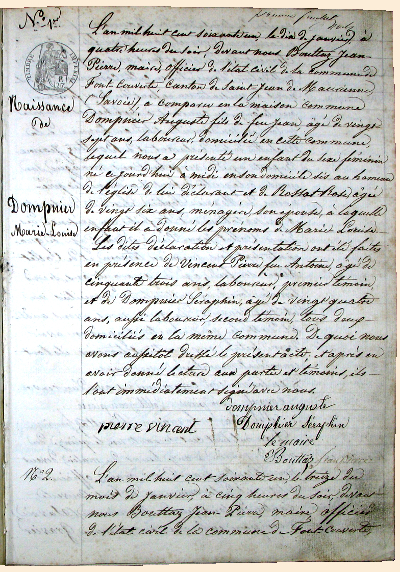 N.º 1er
L'an mil huit cent soixante un, le dix de janvier, à
quatre heures du soir, devant nous Bouttaz Jean-
Pierre, maire, officier de l'état civil de la commune de
Font Couverte, Canton de Saint Jean de Maurienne
(Savoie), a comparu en la maison commune
Naissance
de
Dompnier
Marie-Louise
Dompnier Auguste fils de feu Jean âgé de vingt
sept ans, laboureur, domicilié en cette commune,
lequel nous a présenté un enfant du sexe féminin
né ce jourd'hui à midi en son domicile sis au hameau
de l'église de lui déclarant et de Rossat Rose, âgée
de vingt six ans, ménagère, son épouse, à laquelle
enfant il a donné les prénoms de Marie Louise.
Les dites déclaration et présentation ont été faites
en présence de Vincent Pierre feu Antoine, âgé de
cinquante trois ans, laboureur, premier témoin
et de Dompnier Séraphin, âgé de vingt quatre
ans, aussi laboureur, second témoin, tous deux
domiciliés en la même commune. De quoi nous
avons aussitôt dressé le présent acte, et après en
avoir donné lecture aux partie et témoins, ils
l'ont immédiatement signé avec nous.
dompnier auguste
pierre vincent
Dompnier Séraphin
le maire
Bouttaz
N.º 2.
L'an mil huit cent soixante un, le treize du
mois de janvier, à cinq heures du soir, devant
nous Bouttaz Jean-Pierre, maire officier
de l'état civil de la commune de Font Couverte,